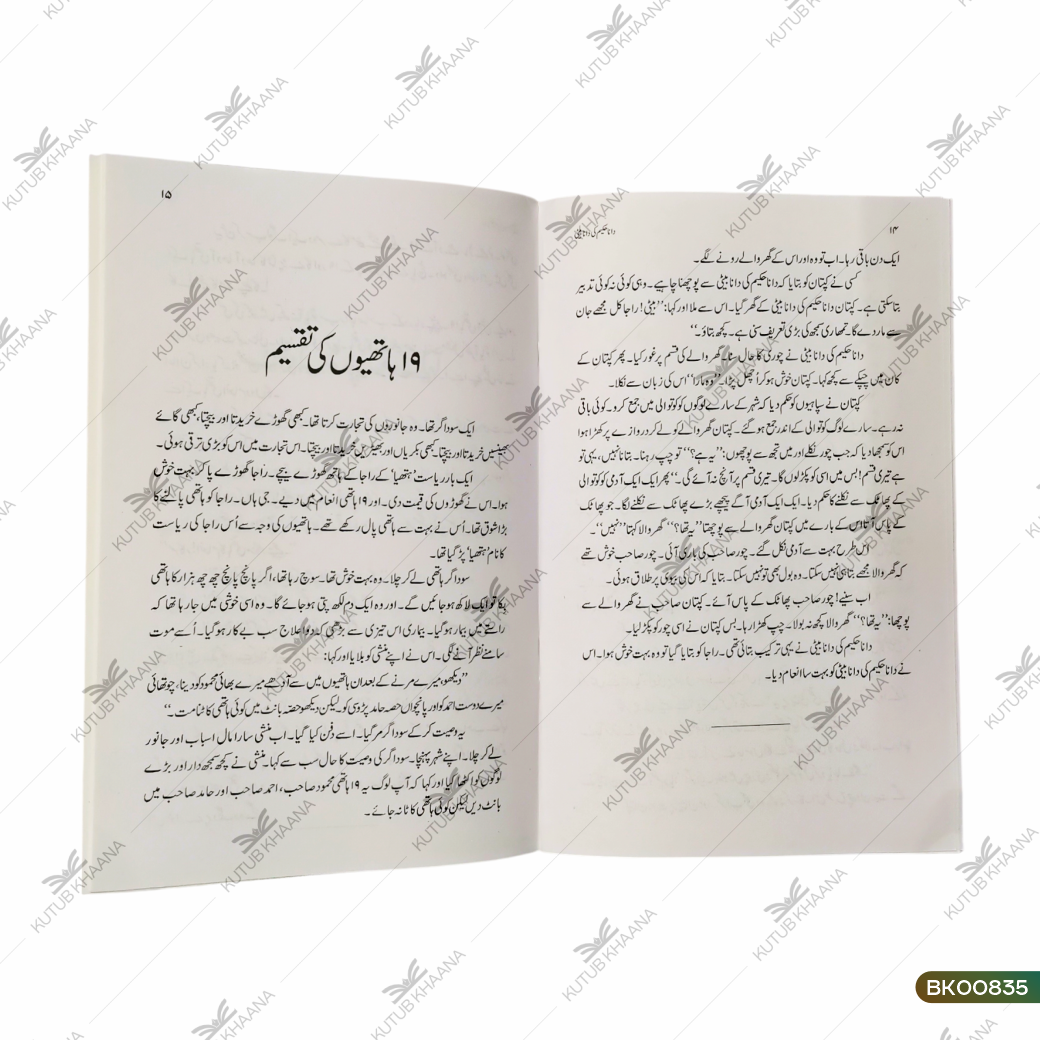 ۱۴
دانا حکیم کی دانا بیٹی
ایک دن باقی رہا۔ اب تو وہ اور اس کے گھر والے رونے لگے۔
کسی نے کپتان کو بتایا کہ دانا حکیم کی دانا بیٹی سے پوچھنا چاہیے۔ وہی کوئی نہ کوئی تدبیر
بتا سکتی ہے۔ کپتان دانا حکیم کی دانا بیٹی کے گھر گیا۔ اس سے ملا اور کہا: ”بیٹی! راجا کل مجھے جان
سے مار دے گا۔ تمھاری سمجھ کی بڑی تعریف سنی ہے۔ کچھ بتاؤ۔“
دانا حکیم کی دانا بیٹی نے چوری کا حال سنا۔ گھر والے کی قسم پر غور کیا۔ پھر کپتان کے
کان میں چپکے سے کچھ کہا۔ کپتان خوش ہو کر اُچھل پڑا۔ ”وہ مارا“ اس کی زبان سے نکلا۔
کپتان نے سپاہیوں کو حکم دیا کہ شہر کے سارے لوگوں کو کوتوالی میں جمع کرو۔ کوئی باقی
نہ رہے۔ سارے لوگ کوتوالی کے اندر جمع ہو گئے۔ کپتان گھر والے کو لے کر دروازے پر کھڑا ہوا
اس کو سمجھا دیا کہ جب چور نکلے اور میں تجھ سے پوچھوں: ”یہ ہے؟“ تو چپ رہنا۔ بتانا نہیں، یہی تو
ہے تیری قسم! بس میں اسی کو پکڑ لوں گا۔ تیری قسم پر آنچ نہ آئے گی۔“ پھر ایک ایک آدمی کو کوتوالی
کے پھاٹک سے نکلنے کا حکم دیا۔ ایک ایک آدمی آگے پیچھے بڑے پھاٹک سے نکلنے لگا۔ جو پھاٹک
کے پاس آتا اس کے بارے میں کپتان گھر والے سے پوچھتا ”یہ تھا؟“ گھر والا کہتا ”نہیں“۔
اس طرح بہت سے آدمی نکل گئے۔ چور صاحب کی باری آئی۔ چور صاحب خوش تھے
کہ گھر والا مجھے بتا ہی نہیں سکتا۔ وہ بول بھی تو نہیں سکتا۔ بتایا کہ اس کی بیوی پر طلاق ہوئی۔
اب سنیے! چور صاحب پھاٹک کے پاس آئے۔ کپتان صاحب نے گھر والے سے
پوچھا: ”یہ تھا؟“ گھر والا کچھ نہ بولا۔ چپ کھڑا رہا۔ بس کپتان نے اسی چور کو پکڑ لیا۔
دانا حکیم کی دانا بیٹی نے یہی ترکیب بتائی تھی۔ راجا کو بتایا گیا تو وہ بہت خوش ہوا۔ اس
نے دانا حکیم کی دانا بیٹی کو بہت سا انعام دیا۔
۱۵
۱۹ ہاتھیوں کی تقسیم
ایک سوداگر تھا۔ وہ جانوروں کی تجارت کرتا تھا۔ کبھی گھوڑے خریدتا اور بیچتا، کبھی گائے
بھینسیں خریدتا اور بیچتا۔ کبھی بکریاں اور بھیڑیں خریدتا اور بیچتا۔ اس تجارت میں اس کو بڑی ترقی ہوئی۔
ایک بار ریاست ’ہتھیا‘ کے راجا کے ہاتھ گھوڑے بیچے۔ راجا گھوڑے پا کر بہت خوش
ہوا۔ اس نے گھوڑوں کی قیمت دی۔ اور ۱۹ ہاتھی انعام میں دیے۔ جی ہاں۔ راجا کو ہاتھی پالنے کا
بڑا شوق تھا۔ اُس نے بہت سے ہاتھی پال رکھے تھے۔ ہاتھیوں کی وجہ سے اُس راجا کی ریاست
کا نام ’ہتھیا‘ پڑ گیا تھا۔
سوداگر ہاتھی لے کر چلا۔ وہ بہت خوش تھا۔ سوچ رہا تھا، اگر پانچ پانچ چھ چھ ہزار کا ہاتھی
بکا تو ایک لاکھ ہو جائیں گے۔ اور وہ ایک دم لکھ پتی ہو جائے گا۔ وہ اسی خوشی میں جا رہا تھا کہ
راستے میں بیمار ہو گیا۔ بیماری اس تیزی سے بڑھی کہ دوا علاج سب بے کار ہو گیا۔ اُسے موت
سامنے نظر آنے لگی۔ اس نے اپنے منشی کو بلایا اور کہا:
”دیکھو، میرے مرنے کے بعد ان ہاتھیوں میں سے آدھے میرے بھائی محمود کو دینا، چوتھائی
میرے دوست احمد کو اور پانچواں حصہ حامد پڑوسی کو۔ لیکن دیکھو حصہ بانٹ میں کوئی ہاتھی کاٹنا مت۔“
یہ وصیت کر کے سوداگر مر گیا۔ اسے دفن کیا گیا۔ اب منشی سارا مال اسباب اور جانور
لے کر چلا۔ اپنے شہر پہنچا۔ سوداگر کی وصیت کا حال سب سے کہا۔ منشی نے کچھ سمجھ دار اور بڑے
لوگوں کو اکٹھا کیا اور کہا کہ آپ لوگ یہ ۱۹ ہاتھی محمود صاحب، احمد صاحب اور حامد صاحب میں
بانٹ دیں لیکن کوئی ہاتھی کاٹا نہ جائے۔
KUTUB KHAANA
BK00835